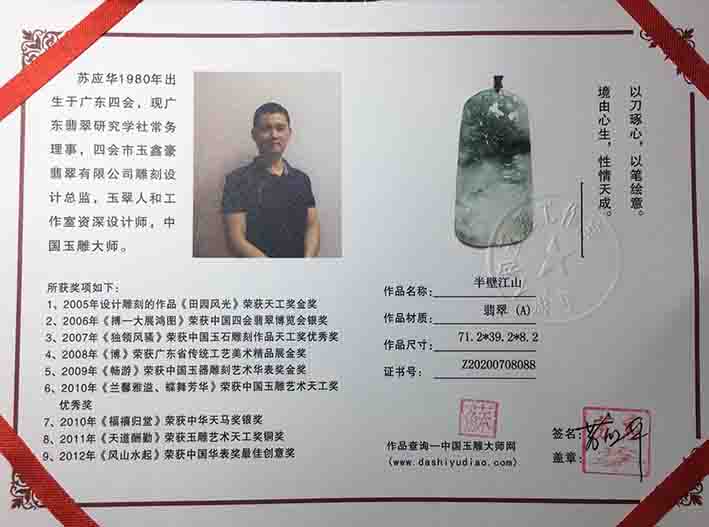 苏应华1980年出
生于广东四会，现广
东翡翠研究学社常务
理事，四会市玉鑫豪
翡翠有限公司雕刻设
计总监，玉翠人和工
作室资深设计师，中
国玉雕大师。
以刀琢心，以笔绘意。
境由心生，性情天成。
所获奖项如下：
1、2005年设计雕刻的作品《田园风光》荣获天工奖金奖
2、2006年《搏一大展鸿图》荣获中国四会翡翠博览会银奖
3、2007年《独领风骚》荣获中国玉石雕刻作品天工奖优秀奖
4、2008年《博》荣获广东省传统工艺美术精品展金奖
5、2009年《畅游》荣获中国玉器雕刻艺术华表奖金奖
6、2010年《兰馨雅溢、蝶舞芳华》荣获中国玉雕艺术天工奖
优秀奖
7、2010年《福禧归堂》荣获中华天马奖银奖
8、2011年《天道酬勤》荣获玉雕艺术天工奖铜奖
9、2012年《风山水起》荣获中国华表奖最佳创意奖
作品名称：半壁江山
作品材质：翡翠 (A)
作品尺寸：71.2*39.2*8.2
证书号：Z20200708088
作品查询—中国玉雕大师网
(www.dashiyudiao.com)
签名：
盖章：